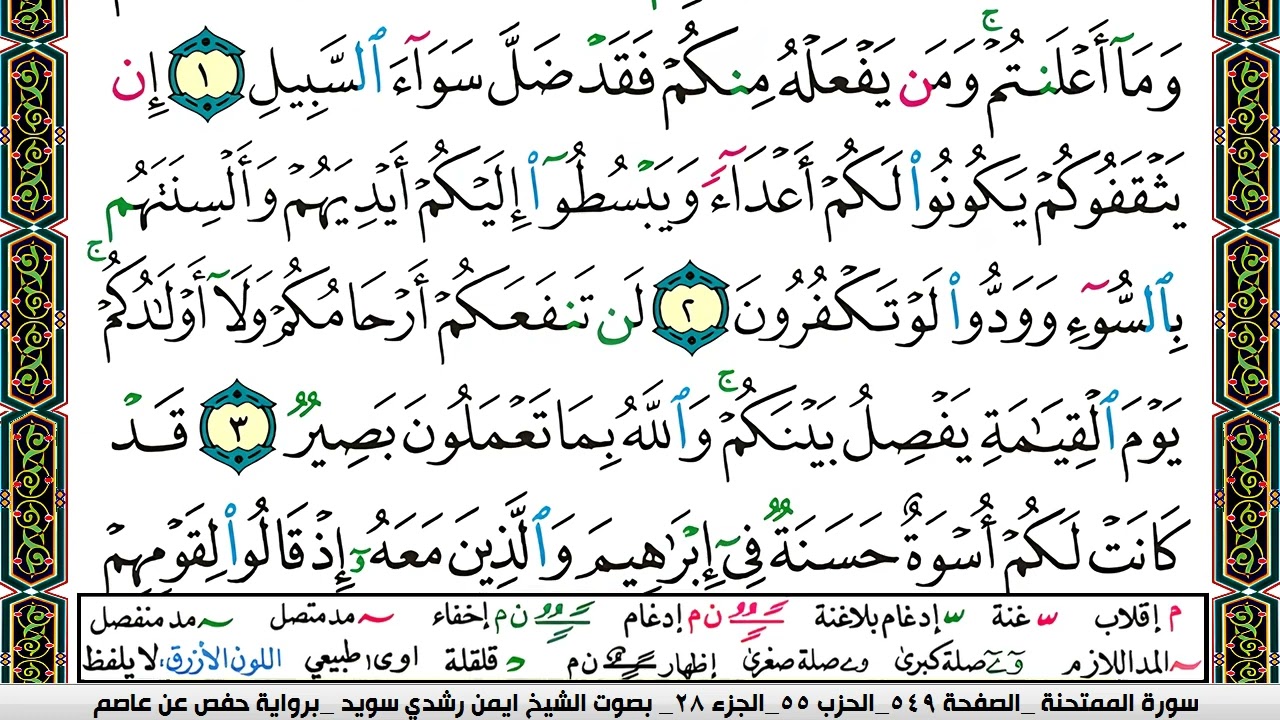 وَمَآ أَعۡلَنتُمۡۚ وَمَن يَفۡعَلۡهُ مِنكُمۡ فَقَدۡ ضَلَّ سَوَآءَ ٱلسَّبِيلِ ١ إِن
يَثۡقَفُوكُمۡ يَكُونُواْ لَكُمۡ أَعۡدَآءٗ وَيَبۡسُطُوٓاْ إِلَيۡكُمۡ أَيۡدِيَهُمۡ وَأَلۡسِنَتَهُم
بِٱلسُّوٓءِ وَوَدُّواْ لَوۡ تَكۡفُرُونَ ٢ لَن تَنفَعَكُمۡ أَرۡحَامُكُمۡ وَلَآ أَوۡلَٰدُكُمۡۚ
يَوۡمَ ٱلۡقِيَٰمَةِ يَفۡصِلُ بَيۡنَكُمۡۚ وَٱللَّهُ بِمَا تَعۡمَلُونَ بَصِيرٞ ٣ قَدۡ
كَانَتۡ لَكُمۡ أُسۡوَةٌ حَسَنَةٞ فِيٓ إِبۡرَٰهِيمَ وَٱلَّذِينَ مَعَهُۥٓ إِذۡ قَالُواْ لِقَوۡمِهِمۡ
م إقلاب غنة إدغام بلاغنة ن م إدغام ن م إخفاء مد متصل مد منفصل
المد اللازم صلة كبرى و ے صلة صغرى إظهار ن م قلقلة ا و ى طبيعي اللون الأزرق، لا يلفظ
سورة الممتحنة _الصفحة ٥٤٩_الحزب ٥٥_الجزء ٢٨_ بصوت الشيخ ايمن رشدي سويد _برواية حفص عن عاصم